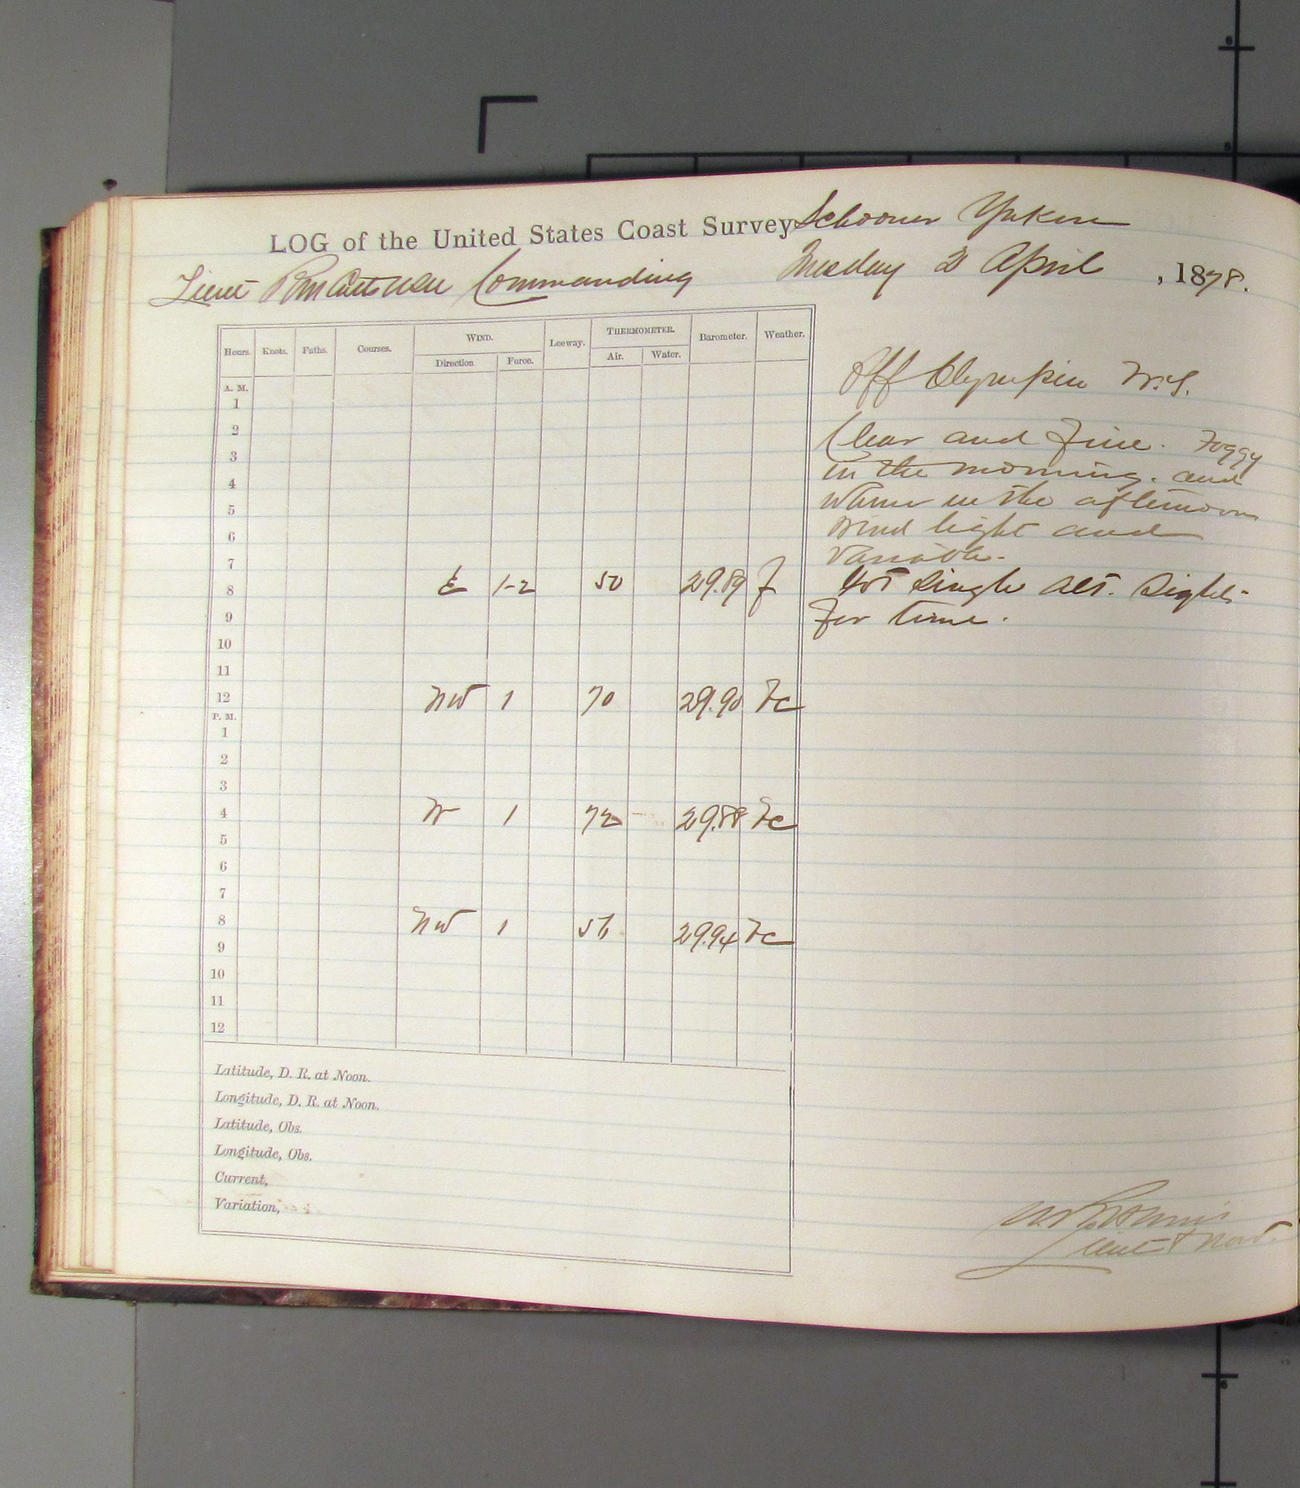 LOG of the United States Coast Survey Schooner Yukon
Lieut Commanding Tuesday 2 April, 1878.
Hours. Knots. Faths. Courses. WIND. Leeway. THERMOMETER. Barometer. Weather.
Direction Force. Air. Water.
A. M.
1
2
3
4
5
6
7
8 E 1-2 50 29.89 f
9
10
11
12 NW 1 70 29.90 Fc
P. M.
1
2
3
4 W 1 72 29.88 Fc
5
6
7
8 NW 1 56 29.94 Fc
9
10
11
12
Latitude, D. R. at Noon.
Longitude, D. R. at Noon.
Latitude, Obs.
Longitude, Obs.
Current,
Variation,
Off Olympia W.T.
Clear and fine. Foggy
in the morning. and
warm in the afternoon
wind light and
variable.
Got single alt. sights
for time.